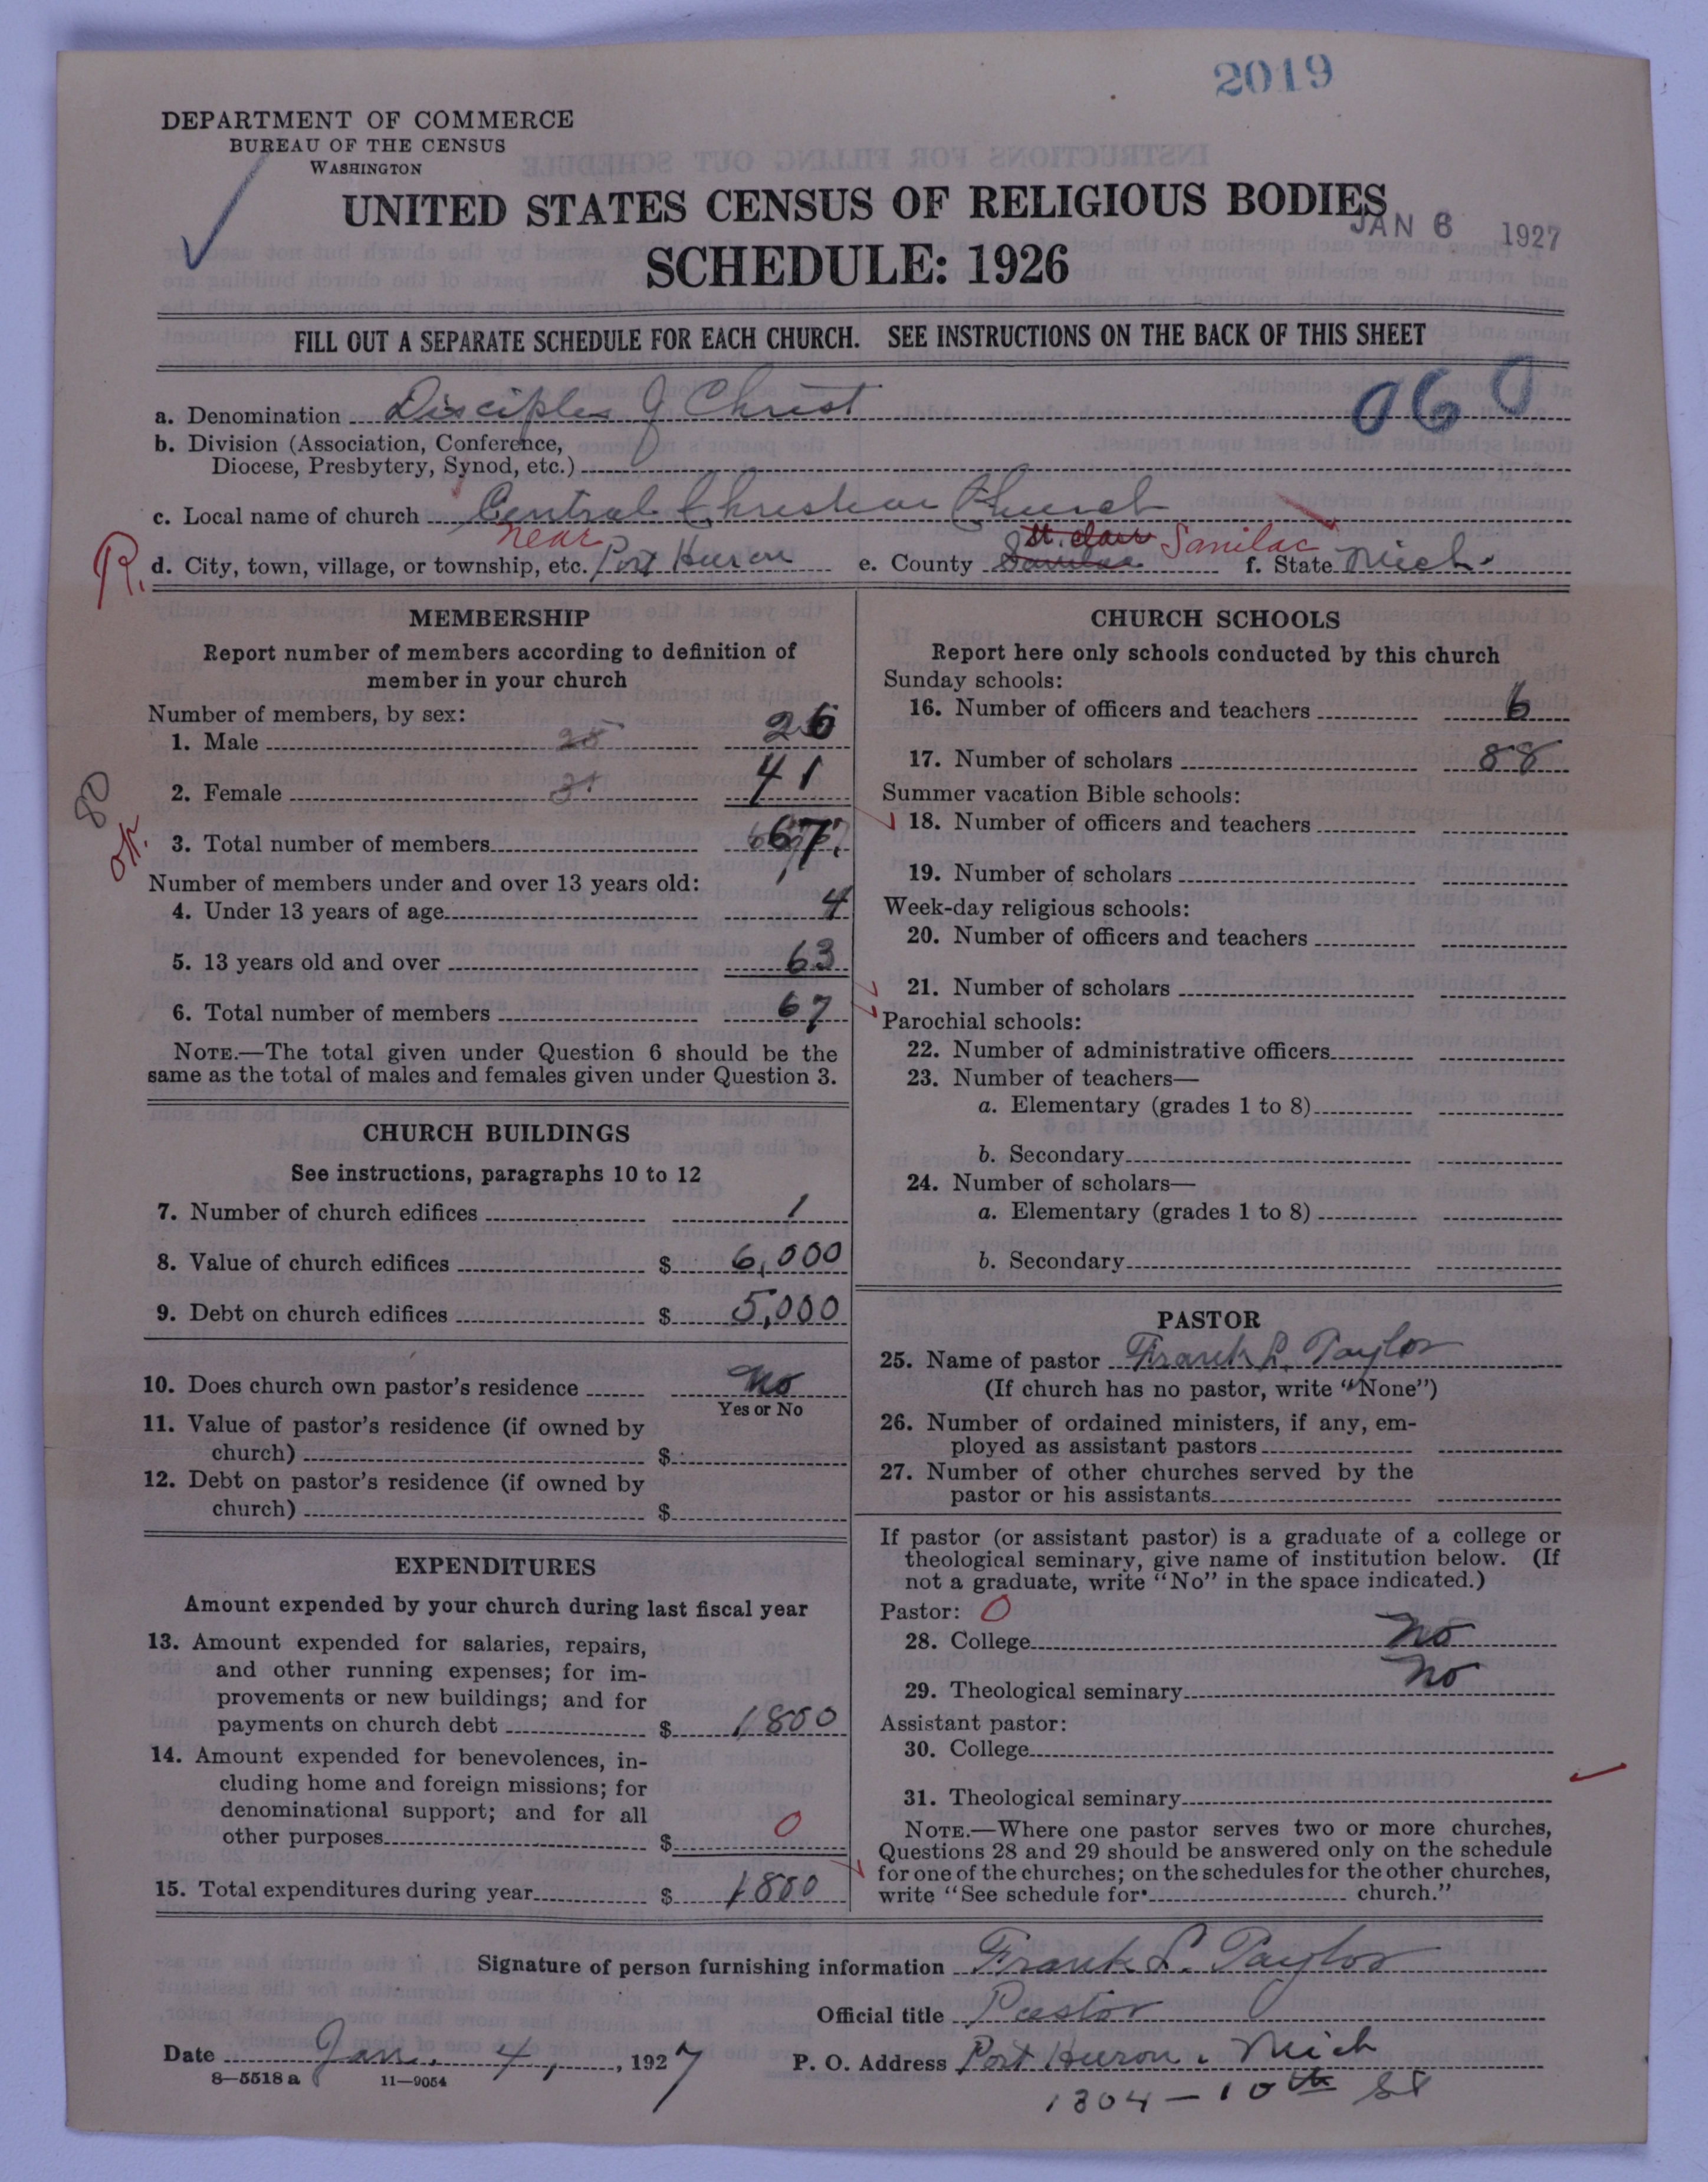 2019
DEPARTMENT OF COMMERCE
BUREAU OF THE CENSUS
WASHINGTON
UNITED STATES CENSUS OF RELIGIOUS BODIES
JAN 6 1927
SCHEDULE: 1926
FILL OUT A SEPARATE SCHEDULE FOR EACH CHURCH. SEE INSTRUCTIONS ON THE BACK OF THIS SHEET
060
a. Denomination Disciples of Christ
b. Division (Association, Conference,
Diocese, Presbytery, Synod, etc.)
c. Local name of church Central Christian Church
R. d. City, town, village, or township, etc. near Port Huron e. County St. Clair Sanilac f. State Mich.
MEMBERSHIP
Report number of members according to definition of
member in your church
Number of members, by sex:
1. Male 25 26
2. Female 41
80
OK.
3. Total number of members 67
Number of members under and over 13 years old:
4. Under 13 years of age 4
5. 13 years old and over 63
6. Total number of members 67
NOTE.—The total given under Question 6 should be the
same as the total of males and females given under Question 3.
CHURCH BUILDINGS
See instructions, paragraphs 10 to 12
7. Number of church edifices 1
8. Value of church edifices $ 6,000
9. Debt on church edifices $ 5,000
10. Does church own pastor's residence No
Yes or No
11. Value of pastor's residence (if owned by
church) $
12. Debt on pastor's residence (if owned by
church) $
EXPENDITURES
Amount expended by your church during last fiscal year
13. Amount expended for salaries, repairs,
and other running expenses; for im-
provements or new buildings; and for
payments on church debt $ 1800
14. Amount expended for benevolences, in-
cluding home and foreign missions; for
denominational support; and for all
other purposes $ 0
15. Total expenditures during year $ 1800
CHURCH SCHOOLS
Report here only schools conducted by this church
Sunday schools:
16. Number of officers and teachers 6
17. Number of scholars 88
Summer vacation Bible schools:
18. Number of officers and teachers
19. Number of scholars
Week-day religious schools:
20. Number of officers and teachers
21. Number of scholars
Parochial schools:
22. Number of administrative officers
23. Number of teachers—
a. Elementary (grades 1 to 8)
b. Secondary
24. Number of scholars—
a. Elementary (grades 1 to 8)
b. Secondary
PASTOR
25. Name of pastor Frank L. Taylor
(If church has no pastor, write "None")
26. Number of ordained ministers, if any, em-
ployed as assistant pastors
27. Number of other churches served by the
pastor or his assistants
If pastor (or assistant pastor) is a graduate of a college or
theological seminary, give name of institution below. (If
not a graduate, write "No" in the space indicated.)
Pastor: 0
28. College No
29. Theological seminary No
Assistant pastor:
30. College
31. Theological seminary
NOTE.—Where one pastor serves two or more churches,
Questions 28 and 29 should be answered only on the schedule
for one of the churches; on the schedules for the other churches,
write "See schedule for church."
Signature of person furnishing information Frank L. Taylor
Official title Pastor
Date Jan. 4, 1927 P. O. Address Port Huron, Mich
8—5518 a 11—9054
1304 - 10th St